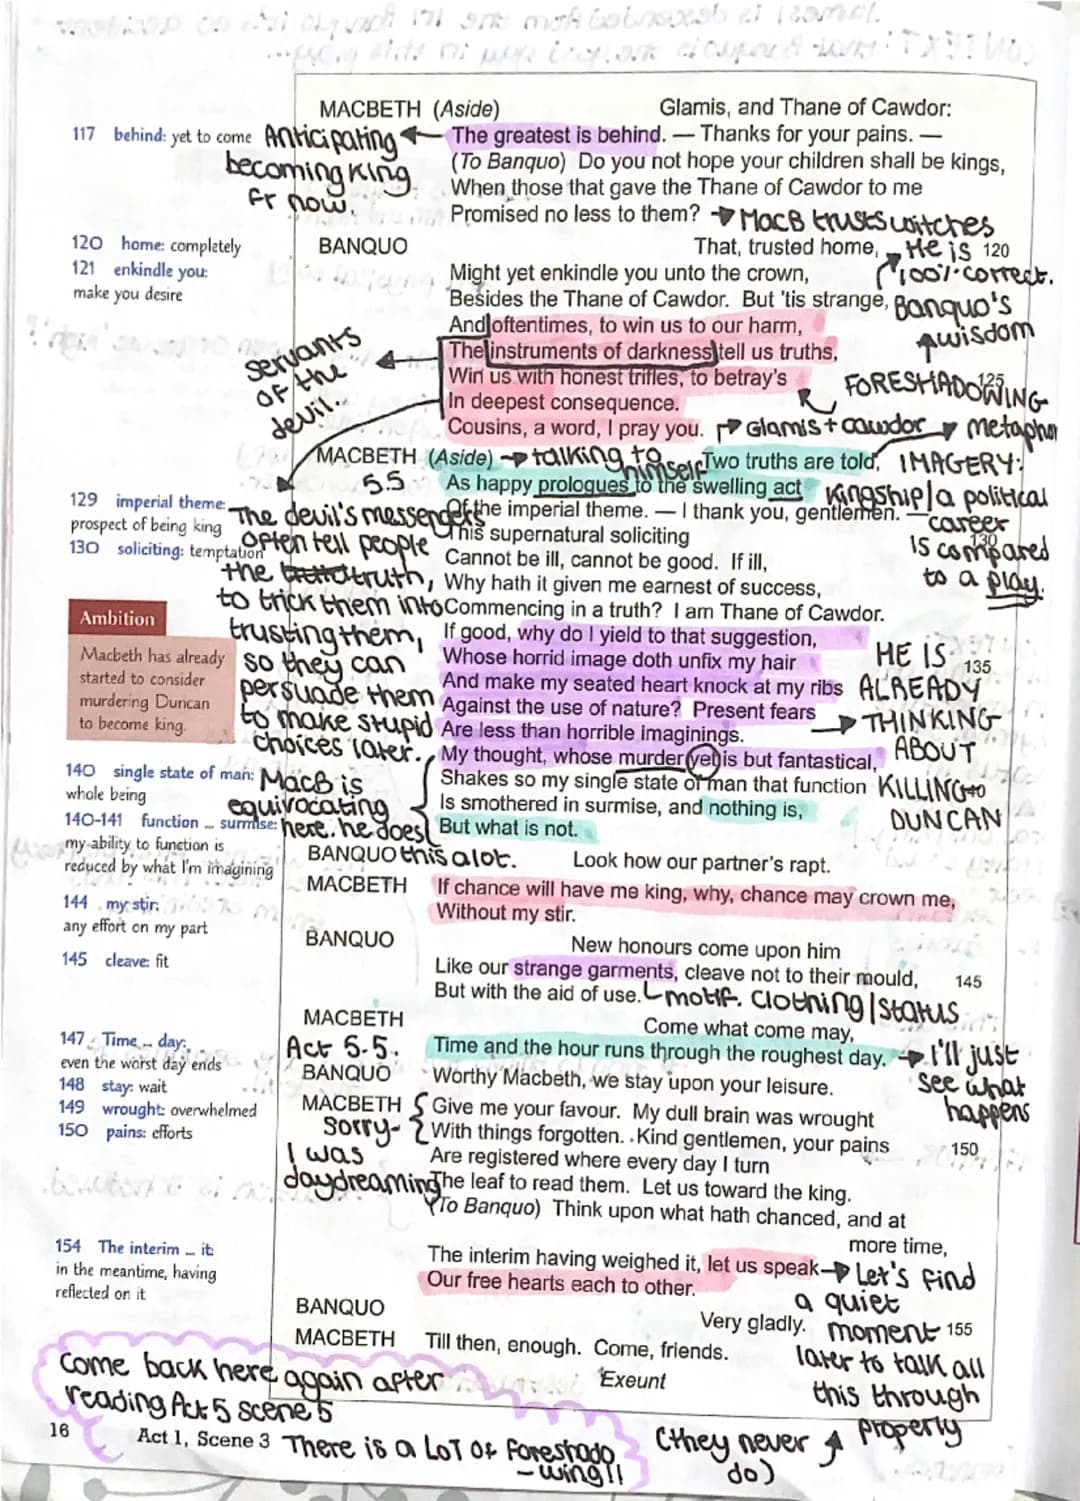 MACBETH (Aside) Glamis, and Thane of Cawdor:
117 behind: yet to come Anticipating becoming King fr now.
The greatest is behind. — Thanks for your pains. —
(To Banquo) Do you not hope your children shall be kings,
When those that gave the Thane of Cawdor to me
Promised no less to them? MacB trusts witches
120 home: completely
121 enkindle you:
make you desire
BANQUO That, trusted home, 120
He is 100% correct.
Might yet enkindle you unto the crown,
Besides the Thane of Cawdor. But 'tis strange,
Banquo's wisdom
And oftentimes, to win us to our harm,
The instruments of darkness tell us truths,
servants of the devil..
Win us with honest trifles, to betray's 125
FORESHADOWING
In deepest consequence.
Cousins, a word, I pray you. Glamis + cawdor metaphor
MACBETH (Aside) talking to himself Two truths are told,
5.5 As happy prologues to the swelling act
IMAGERY: Kingship/a political career is compared to a play.
129 imperial theme:
prospect of being king
130 soliciting: temptation
Of the imperial theme. — I thank you, gentlemen. —
This supernatural soliciting 130
Cannot be ill, cannot be good. If ill,
Why hath it given me earnest of success,
Commencing in a truth? I am Thane of Cawdor.
The devil's messengers
often tell people
the truth,
to trick them into
trusting them,
so they can
persuade them
to make stupid
choices later.
Ambition
Macbeth has already
started to consider
murdering Duncan
to become king.
If good, why do I yield to that suggestion,
Whose horrid image doth unfix my hair 135
And make my seated heart knock at my ribs
Against the use of nature? Present fears
Are less than horrible imaginings.
My thought, whose murder yet is but fantastical,
HE IS
ALREADY
THINKING
ABOUT
KILLING
DUNCAN
140 single state of man:
whole being
140-141 function ... surmise:
my ability to function is
reduced by what I'm imagining
Shakes so my single state of man that function 140
Is smothered in surmise, and nothing is,
But what is not.
MacB is
equivocating
here. he does
this a lot.
BANQUO Look how our partner's rapt.
144 my stir:
any effort on my part
MACBETH If chance will have me king, why, chance may crown me,
Without my stir.
145 cleave: fit
BANQUO New honours come upon him
Like our strange garments, cleave not to their mould, 145
But with the aid of use. motif. Clothing/status
MACBETH Come what come may,
147 Time ... day:
even the worst day ends
Act 5.5. Time and the hour runs through the roughest day.
I'll just
see what
happens
148 stay: wait
BANQUO Worthy Macbeth, we stay upon your leisure.
149 wrought: overwhelmed
150 pains: efforts
MACBETH Give me your favour. My dull brain was wrought
With things forgotten. Kind gentlemen, your pains 150
Sorry-
I was
daydreaming
Are registered where every day I turn
The leaf to read them. Let us toward the king.
(To Banquo) Think upon what hath chanced, and at
more time,
154 The interim ... it:
in the meantime, having
reflected on it
The interim having weighed it, let us speak
Our free hearts each to other.
Let's find
a quiet
moment
later to talk all
this through
properly
(they never
do)
BANQUO Very gladly. 155
MACBETH Till then, enough. Come, friends.
Exeunt
Come back here again after
reading Act 5 scene 5
There is a LOT OF foreshado
-wing!!
16 Act 1, Scene 3